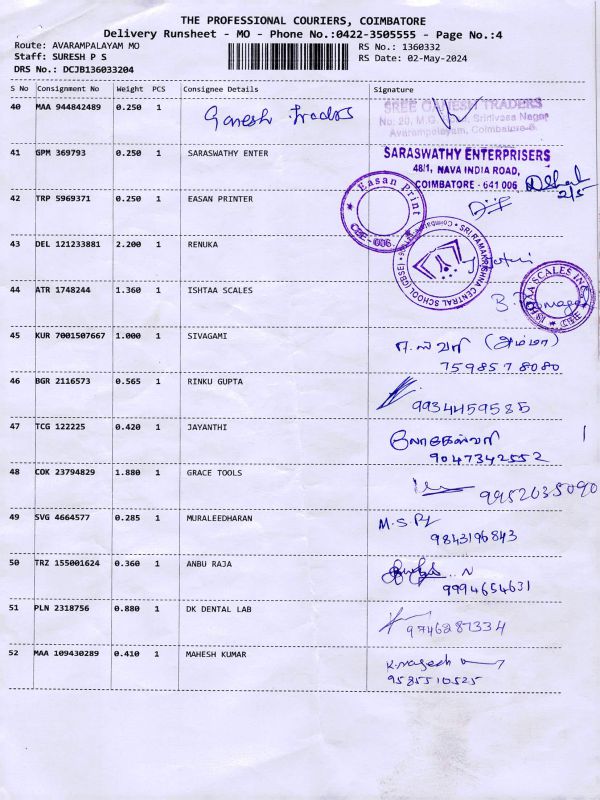 THE PROFESSIONAL COURIERS, COIMBATORE
Delivery Runsheet - MO - Phone No.:0422-3505555 - Page No.:4
Route: AVARAMPALAYAM MO
RS No.: 1360332
Staff: SURESH P S
RS Date: 02-May-2024
DRS No.: DCJB136033204
S No Consignment No Weight PCS Consignee Details Signature
40 MAA 944842489 0.250 1 Ganesh Traders
SREE GANESH TRADERS
No. 20, M.G. Srinivasa Nagar
Avarampalayam, Coimbatore-6.
41 GPM 369793 0.250 1 SARASWATHY ENTER
SARASWATHY ENTERPRISERS
48/1, NAVA INDIA ROAD,
COIMBATORE - 641 006
2/5
42 TRP 5969371 0.250 1 EASAN PRINTER
Easan Print
CBE-006.
43 DEL 121233881 2.200 1 RENUKA
SRI RAMAKRISHNA CENTRAL SCHOOL (CBSE) Coimbatore
44 ATR 1748244 1.360 1 ISHTAA SCALES
ISHTAA SCALES INC
CBE
45 KUR 7001507667 1.000 1 SIVAGAMI
(அம்மா)
7598578080
46 BGR 2116573 0.565 1 RINKU GUPTA
9934459585
47 TCG 122225 0.420 1 JAYANTHI
லோகேஸ்வரி
9047342552
48 COK 23794829 1.880 1 GRACE TOOLS
9952635090
49 SVG 4664577 0.285 1 MURALEEDHARAN
M.S
9843196843
50 TRZ 155001624 0.360 1 ANBU RAJA
N
9994654631
51 PLN 2318756 0.880 1 DK DENTAL LAB
9746287334
52 MAA 109430289 0.410 1 MAHESH KUMAR
K. Nagesh
9585510525